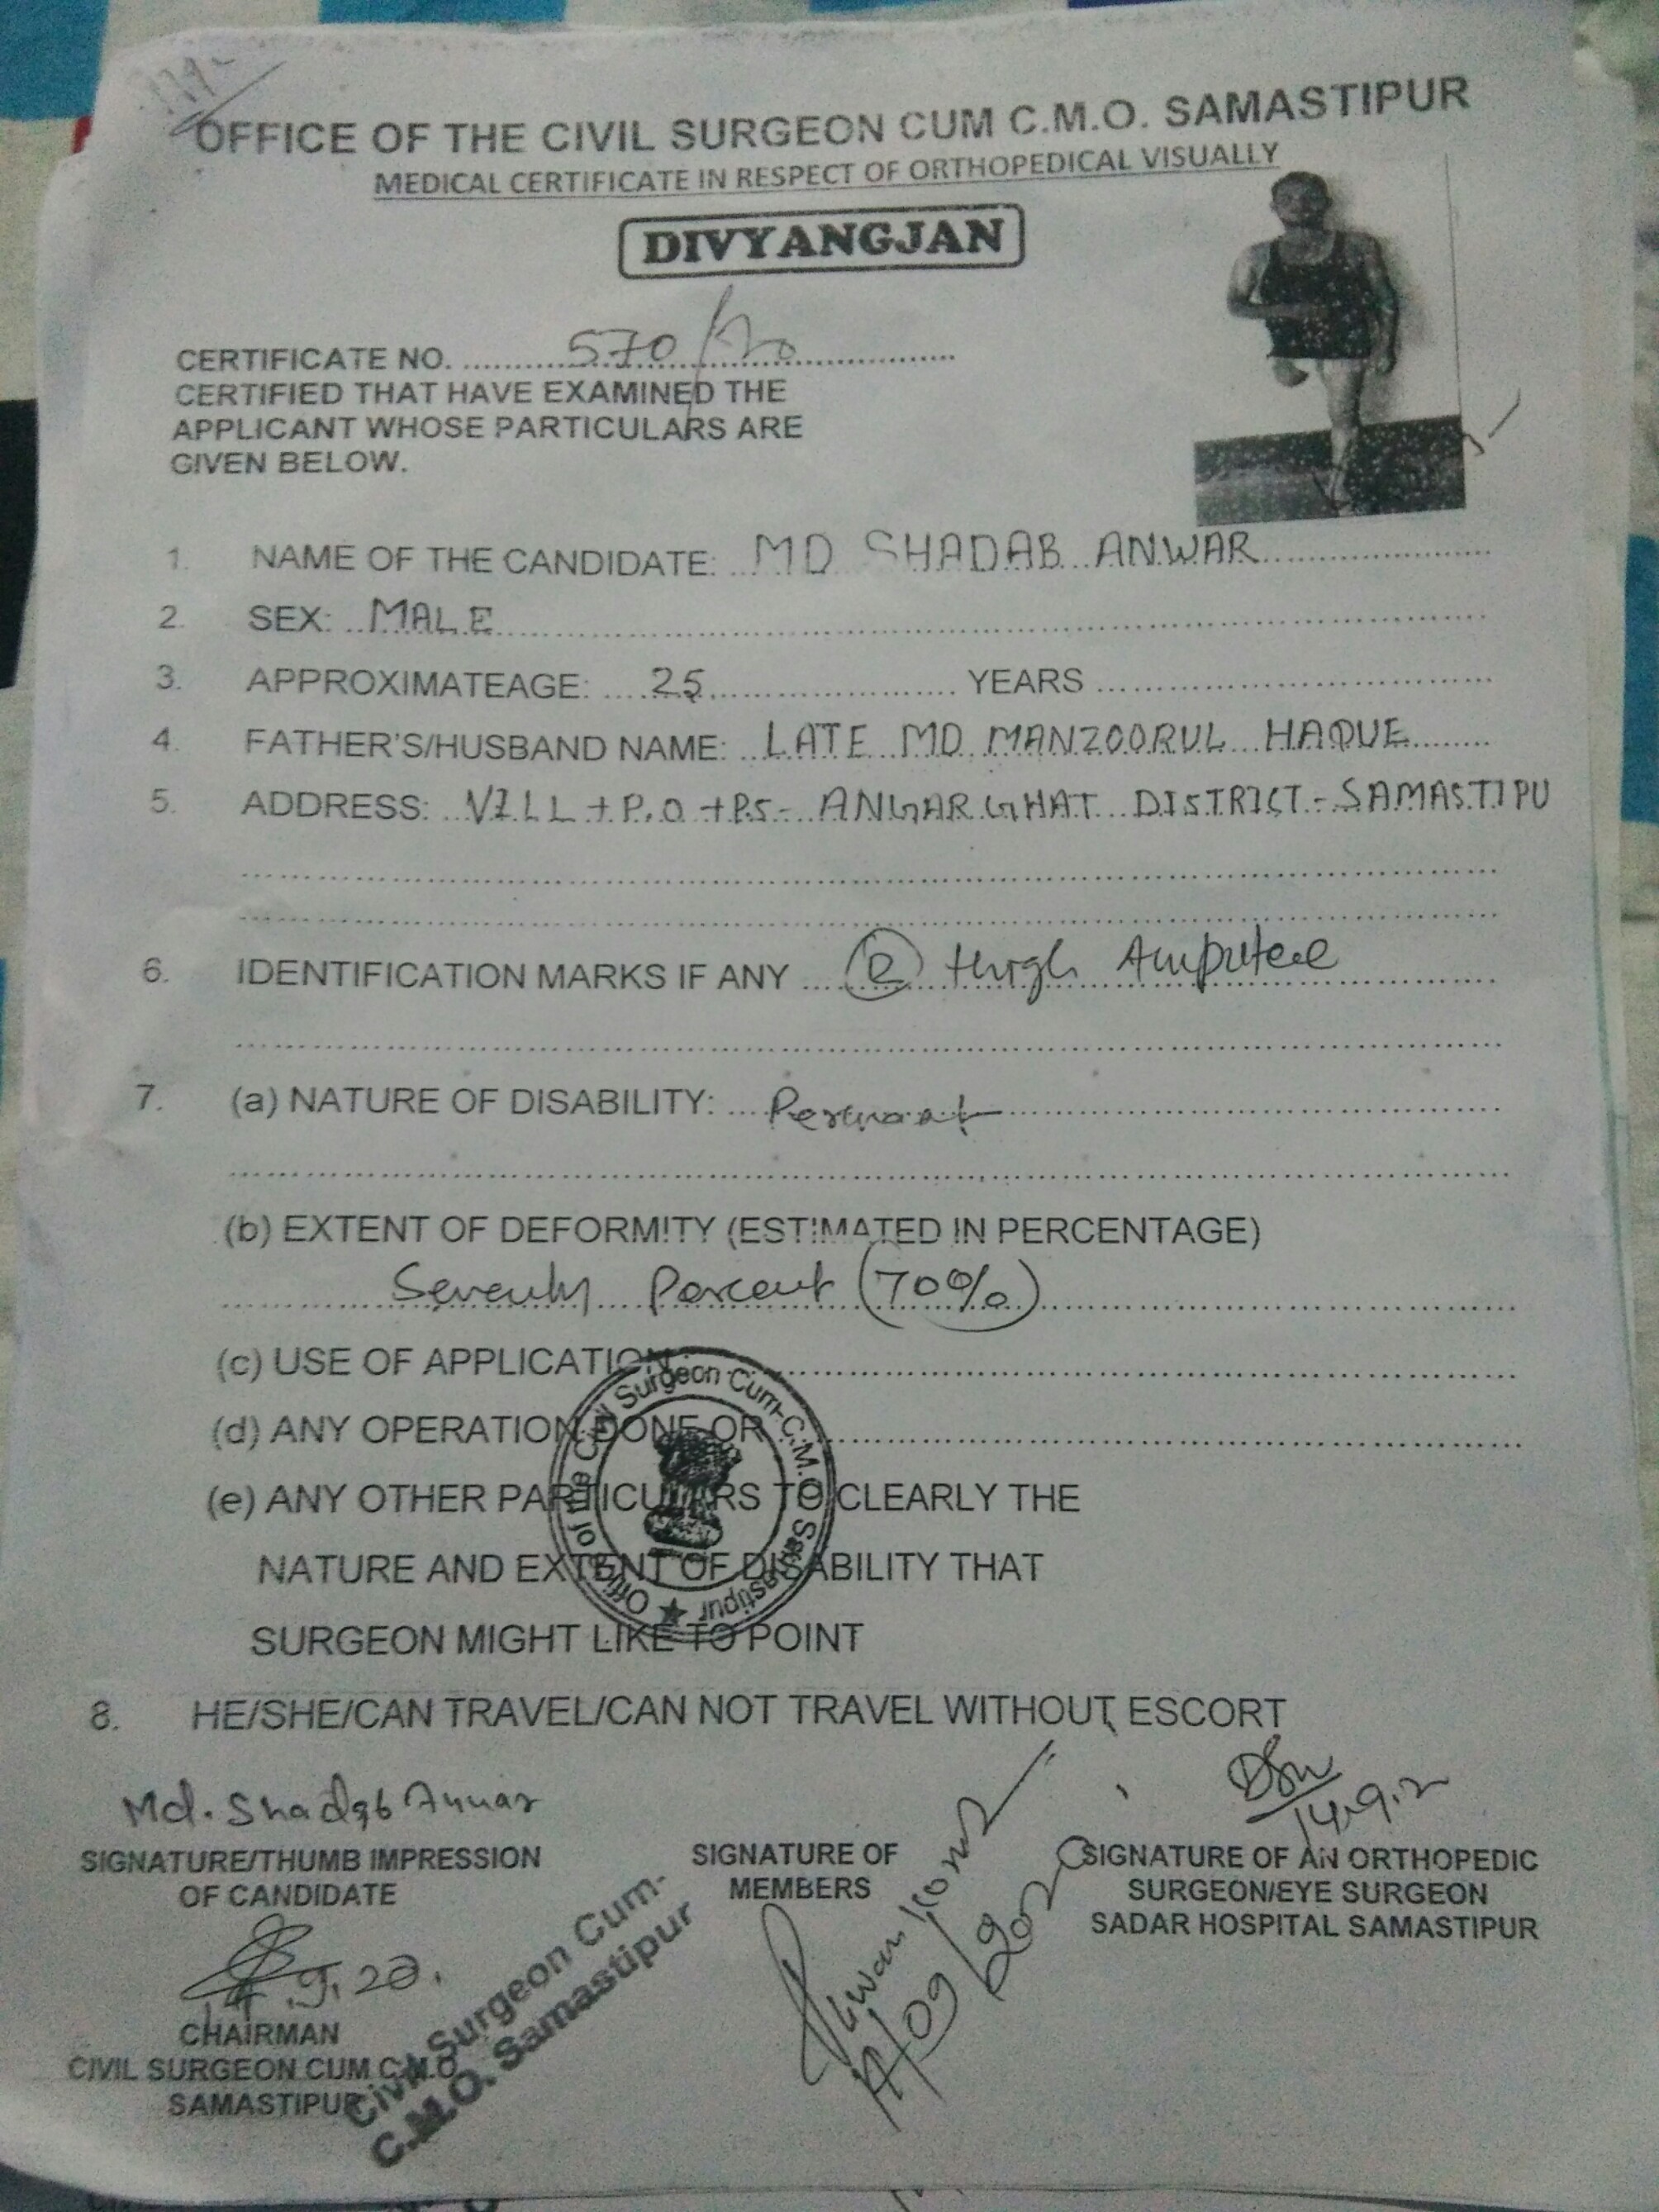 OFFICE OF THE CIVIL SURGEON CUM C.M.O. SAMASTIPUR
MEDICAL CERTIFICATE IN RESPECT OF ORTHOPEDICAL VISUALLY
DIVYANGJAN
CERTIFICATE NO. 570/20
CERTIFIED THAT HAVE EXAMINED THE
APPLICANT WHOSE PARTICULARS ARE
GIVEN BELOW.
1. NAME OF THE CANDIDATE: MD SHADAB ANWAR
2. SEX: MALE
3. APPROXIMATEAGE: 25 YEARS
4. FATHER'S/HUSBAND NAME: LATE MD MANZOORUL HAQUE
5. ADDRESS: VILL + P.O + PS - ANGARGHAT DISTRICT - SAMASTIPU
6. IDENTIFICATION MARKS IF ANY (R) thigh Amputee
7. (a) NATURE OF DISABILITY: Permanent
(b) EXTENT OF DEFORMITY (ESTIMATED IN PERCENTAGE)
Seventy Percent (70%)
(c) USE OF APPLICATION
(d) ANY OPERATION DONE OR
(e) ANY OTHER PARTICULARS TO CLEARLY THE
NATURE AND EXTENT OF DISABILITY THAT
SURGEON MIGHT LIKE TO POINT
Office of the Civil Surgeon Cum-C.M.O Samastipur
8. HE/SHE/CAN TRAVEL/CAN NOT TRAVEL WITHOUT ESCORT
Md. Shadab Anwar
14.9.2
SIGNATURE/THUMB IMPRESSION
OF CANDIDATE
SIGNATURE OF
MEMBERS
SIGNATURE OF AN ORTHOPEDIC
SURGEON/EYE SURGEON
SADAR HOSPITAL SAMASTIPUR
14.9.20.
14/09/2020
CHAIRMAN
CIVIL SURGEON CUM C.M.O.
SAMASTIPUR
Civil Surgeon Cum-
C.M.O. Samastipur